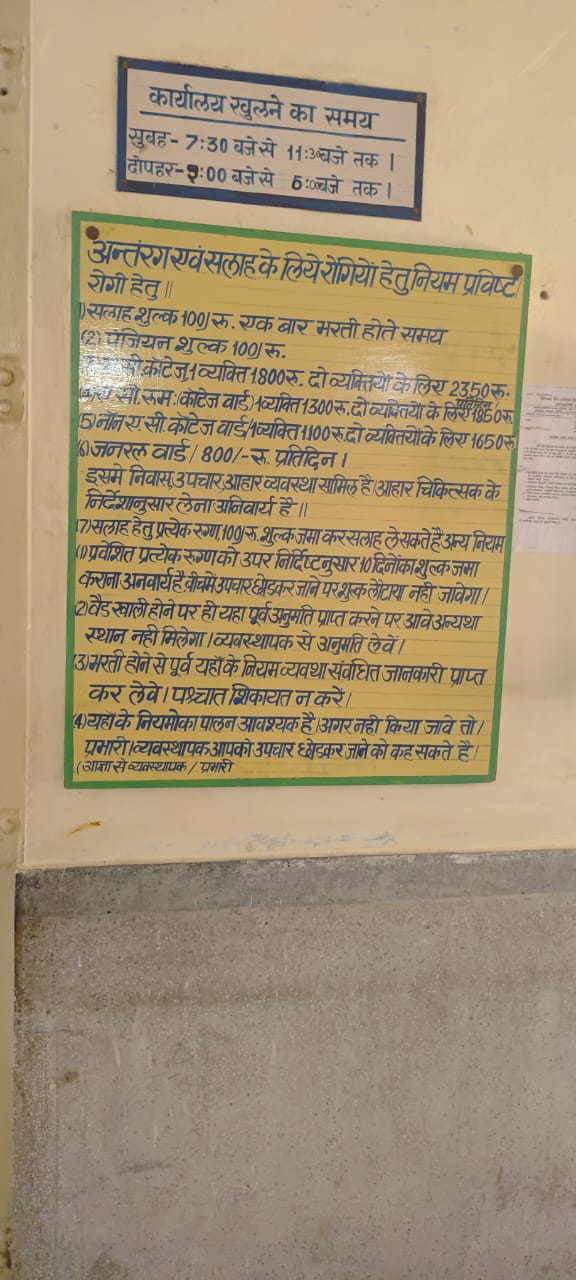 कार्यालय खुलने का समय
सुबह- 7:30 बजे से 11:30बजे तक ।
दोपहर- :00 बजे से :00बजे तक ।
अन्तंरग एवं सलाह के लिये रोगियों हेतु नियम प्रविष्ट
रोगी हेतु ॥
1)सलाह शुल्क 100/रू. एक बार भरती होते समय
(2) पंजियन शुल्क 100/रू.
सी.कॉटेज,1 व्यक्ति 1800रू. दो व्यक्तियों के लिए 2350रू.
प्रतिदिन
(4)ए.सी.रूम:(कॉटेज वार्ड)1व्यक्ति 1300रू.दो व्यक्तियों के लिए 1850रू
(5)नान ए सी. कॉटेज वार्ड/1व्यक्ति 1100रू.दो व्यक्तियों के लिए 1650रू
(6)जनरल वार्ड / 800/-रू. प्रतिदिन ।
इसमे निवास,उपचार,आहार व्यवस्था सामिल है।आहार चिकित्सक के
निर्देशानुसार लेना अनिवार्य है ॥
(7)सलाह हेतु प्रत्येक रुग्ण,100/रू. शुल्क जमा कर सलाह ले सकते हैं अन्य नियम
(1)प्रवेशित प्रत्येक रुग्ण को उपर निर्दिष्टनुसार 10 दिनेंका शुल्क जमा
कराना अनवार्य है,बीचमे उपचार छोडकर जाने पर शुल्क लौटाया नही जावेगा ।
(2)वैड खाली होने पर ही यहा पूर्व अनुमति प्राप्त करने पर आवे अन्यथा
स्थान नही मिलेगा । व्यवस्थापक से अनुमति लेवें ।
(3)भरती होने से पूर्व यहाँ के नियम व्यवथा संवंधित जानकारी प्राप्त
कर लेवे । पश्चात शिकायत न करें ।
(4)यहाँ के नियमोका पालन आवश्यक है ।अगर नही किया जावे तो ।
प्रभारी।व्यवस्थापक आपको उपचार छोडकर जाने को कह सकते है ।
(आज्ञा से व्यवस्थापक / प्रभारी